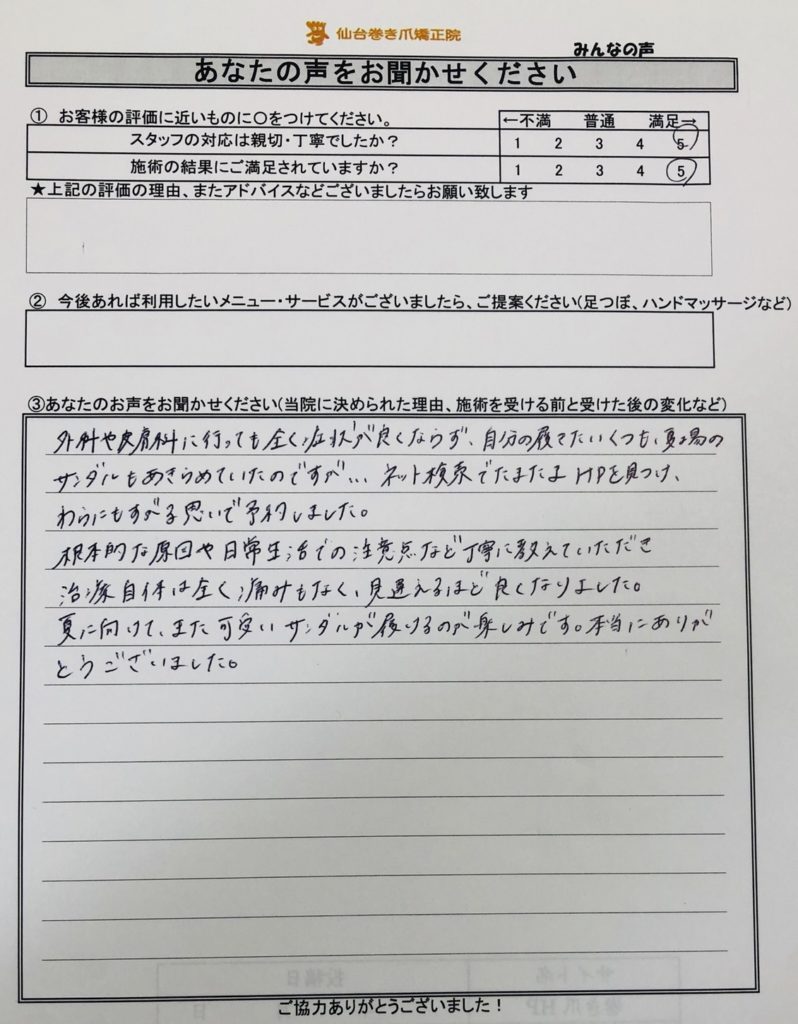 仙台巻き爪矯正院
みんなの声
あなたの声をお聞かせください
① お客様の評価に近いものに〇をつけてください。
←不満 普通 満足→
スタッフの対応は親切・丁寧でしたか？ 1 2 3 4 5
施術の結果にご満足されていますか？ 1 2 3 4 5
★上記の評価の理由、またアドバイスなどございましたらお願い致します
② 今後あれば利用したいメニュー・サービスがございましたら、ご提案ください(足つぼ、ハンドマッサージなど)
③あなたのお声をお聞かせください(当院に決められた理由、施術を受ける前と受けた後の変化など)
外科や皮膚科に行っても全く症状が良くならず、自分の履きたいくつも、夏場の
サンダルもあきらめていたのですが… ネット検索でたまたまHPを見つけ、
わらにもすがる思いで予約しました。
根本的な原因や日常生活での注意点など丁寧に教えていただき
治療自体は全く痛みもなく、見違えるほど良くなりました。
夏に向けて、また可愛いサンダルが履けるのが楽しみです。本当にありが
とうございました。
ご協力ありがとうございました！